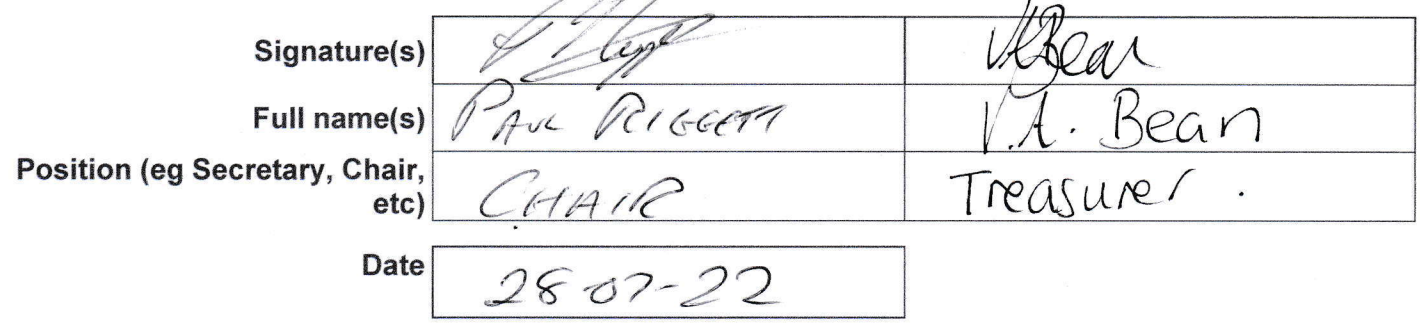 Signature(s) VABean
Full name(s) PAUL V.A. Bean
Position (eg Secretary, Chair, etc) CHAIR Treasurer.
Date 28-07-22